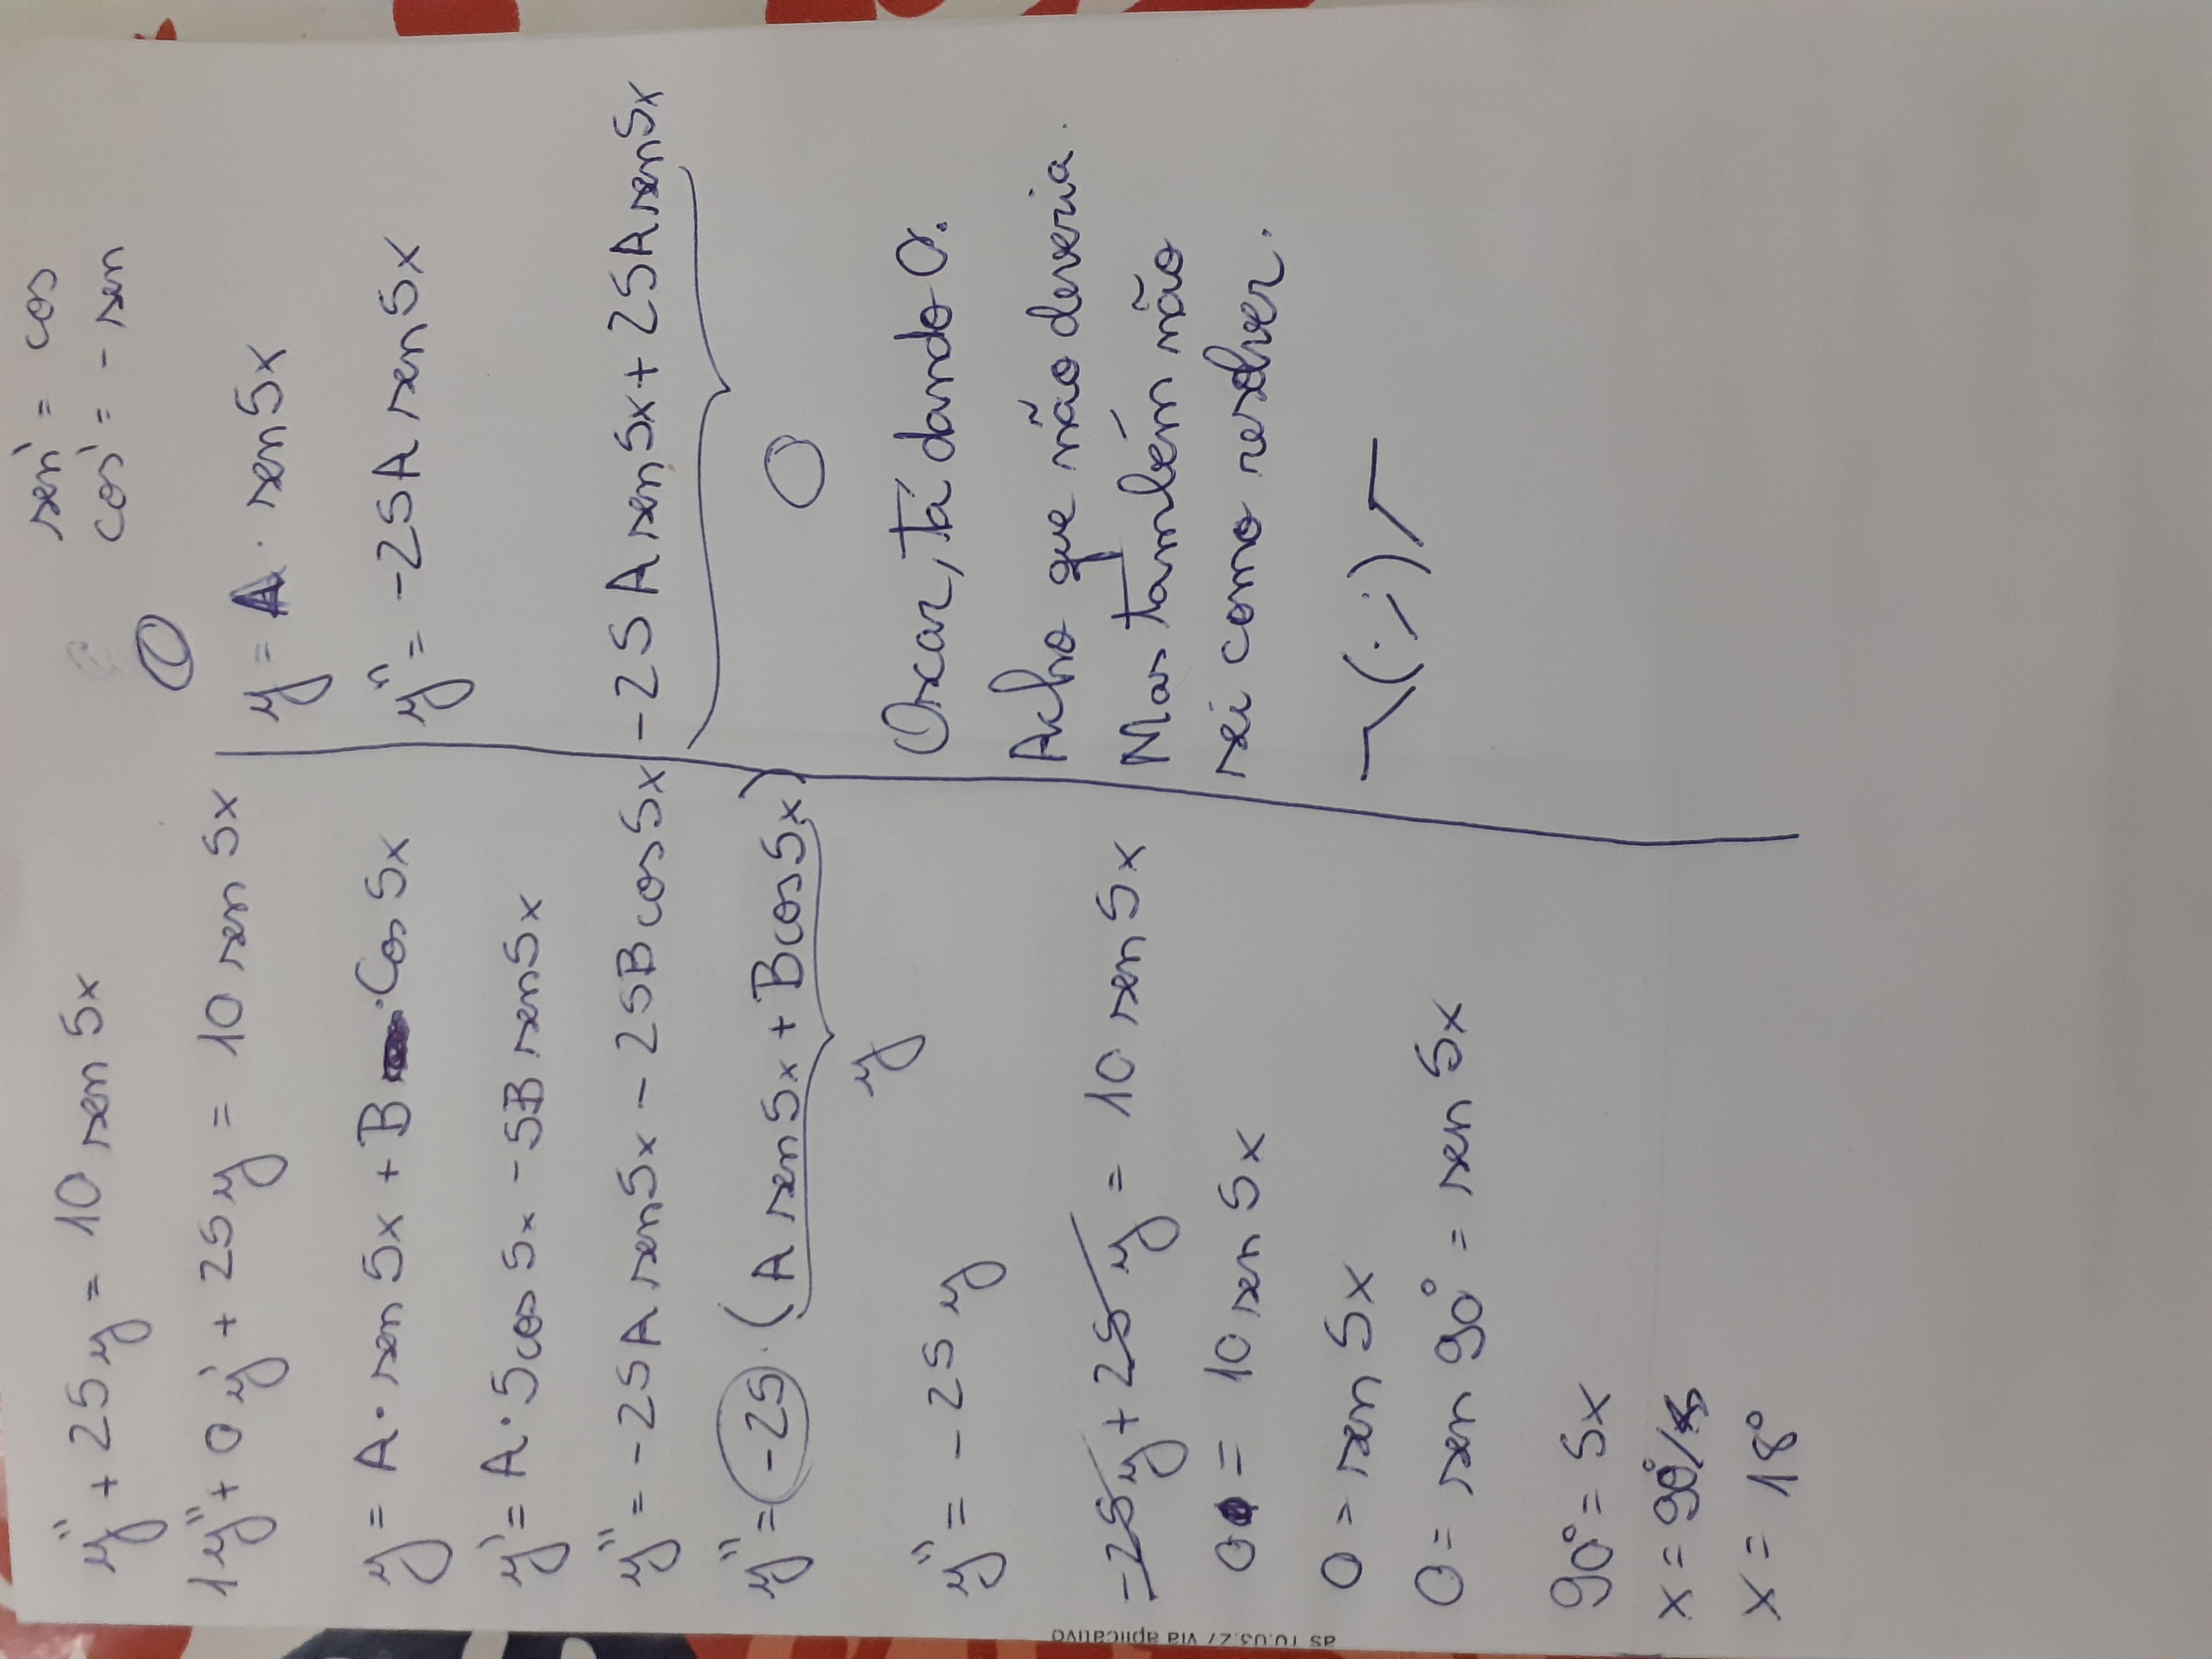 y'' + 25y = 10 sen 5x
1y'' + 0y' + 25y = 10 sen 5x
y = A · sen 5x + B · Cos 5x
y' = A · 5cos 5x - 5B sen5x
y'' = -25A sen5x - 25B cos5x
y'' = -25 · (A sen5x + Bcos5x)
y
y'' = -25y
-25y + 25y = 10 sen5x
0 = 10 sen 5x
0 = sen 5x
0 = sen 90° = sen 5x
90° = 5x
x = 90°/5
x = 18°
sen' = cos
cos' = - sen
0
y = A · sen5x
y'' = -25A sen5x
-25A sen5x + 25A sen5x
0
Oscar, tá dando 0.
Acho que não deveria.
Mas também não
sei como resolver.
às 10:03:27 via aplicativo